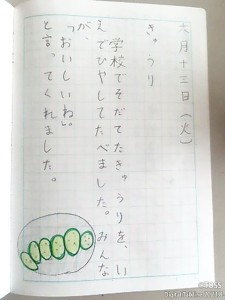 六月十三日(火)
き。うり
学校でそだてたき。うりを、い
え、でひやしてたべました。みんな
が、
「おいしいね。」
と言ってくれました。